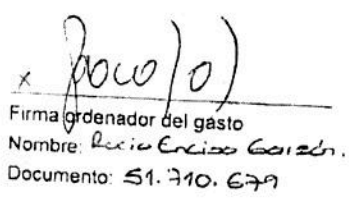 x
Firma ordenador del gasto
Nombre: Rocio Enciso Garzón.
Documento: 51.710.679